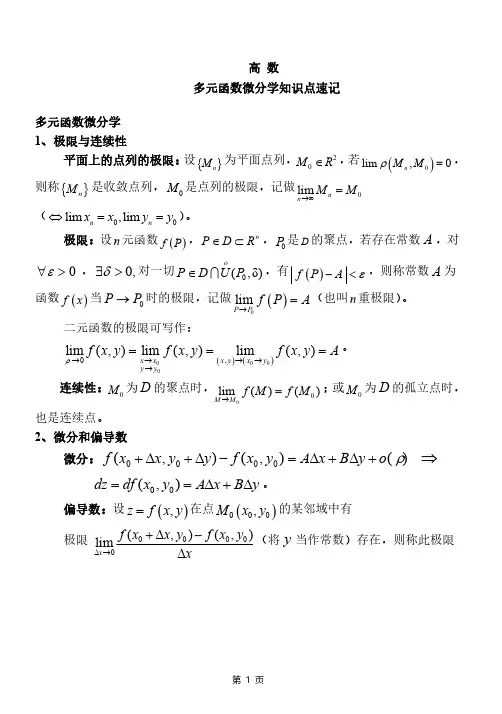 高 数
多元函数微分学知识点速记
多元函数微分学
1、极限与连续性
平面上的点列的极限：设{Mₙ}为平面点列，M₀∈R²，若lim ρ(Mₙ,M₀)=0，
则称{Mₙ}是收敛点列，M₀是点列的极限，记做lim_{n→∞} Mₙ=M₀
（⇔lim xₙ=x₀,lim yₙ=y₀）。
极限：设n元函数f(P)，P∈D⊂Rⁿ，P₀是D的聚点，若存在常数A，对
∀ε>0，∃δ>0,对一切P∈D⋂U^o(P₀,δ)，有|f(P)−A|<ε，则称常数A为
函数f(x)当P→P₀时的极限，记做lim_{P→P₀} f(P)=A（也叫n重极限）。
二元函数的极限可写作：
lim_{ρ→0} f(x,y)=lim_{x→x₀ y→y₀} f(x,y)=lim_{(x,y)→(x₀→y₀)} f(x,y)=A。
连续性：M₀为D的聚点时，lim_{M→M₀} f(M)=f(M₀)；或M₀为D的孤立点时，
也是连续点。
2、微分和偏导数
微分：f(x₀+Δx,y₀+Δy)−f(x₀,y₀)=AΔx+BΔy+o(ρ) ⇒
dz=df(x₀,y₀)=AΔx+BΔy。
偏导数：设z=f(x,y)在点M₀(x₀,y₀)的某邻域中有
极限 lim_{Δx→0} (f(x₀+Δx,y₀)−f(x₀,y₀))/Δx（将y当作常数）存在，则称此极限
第 1 页